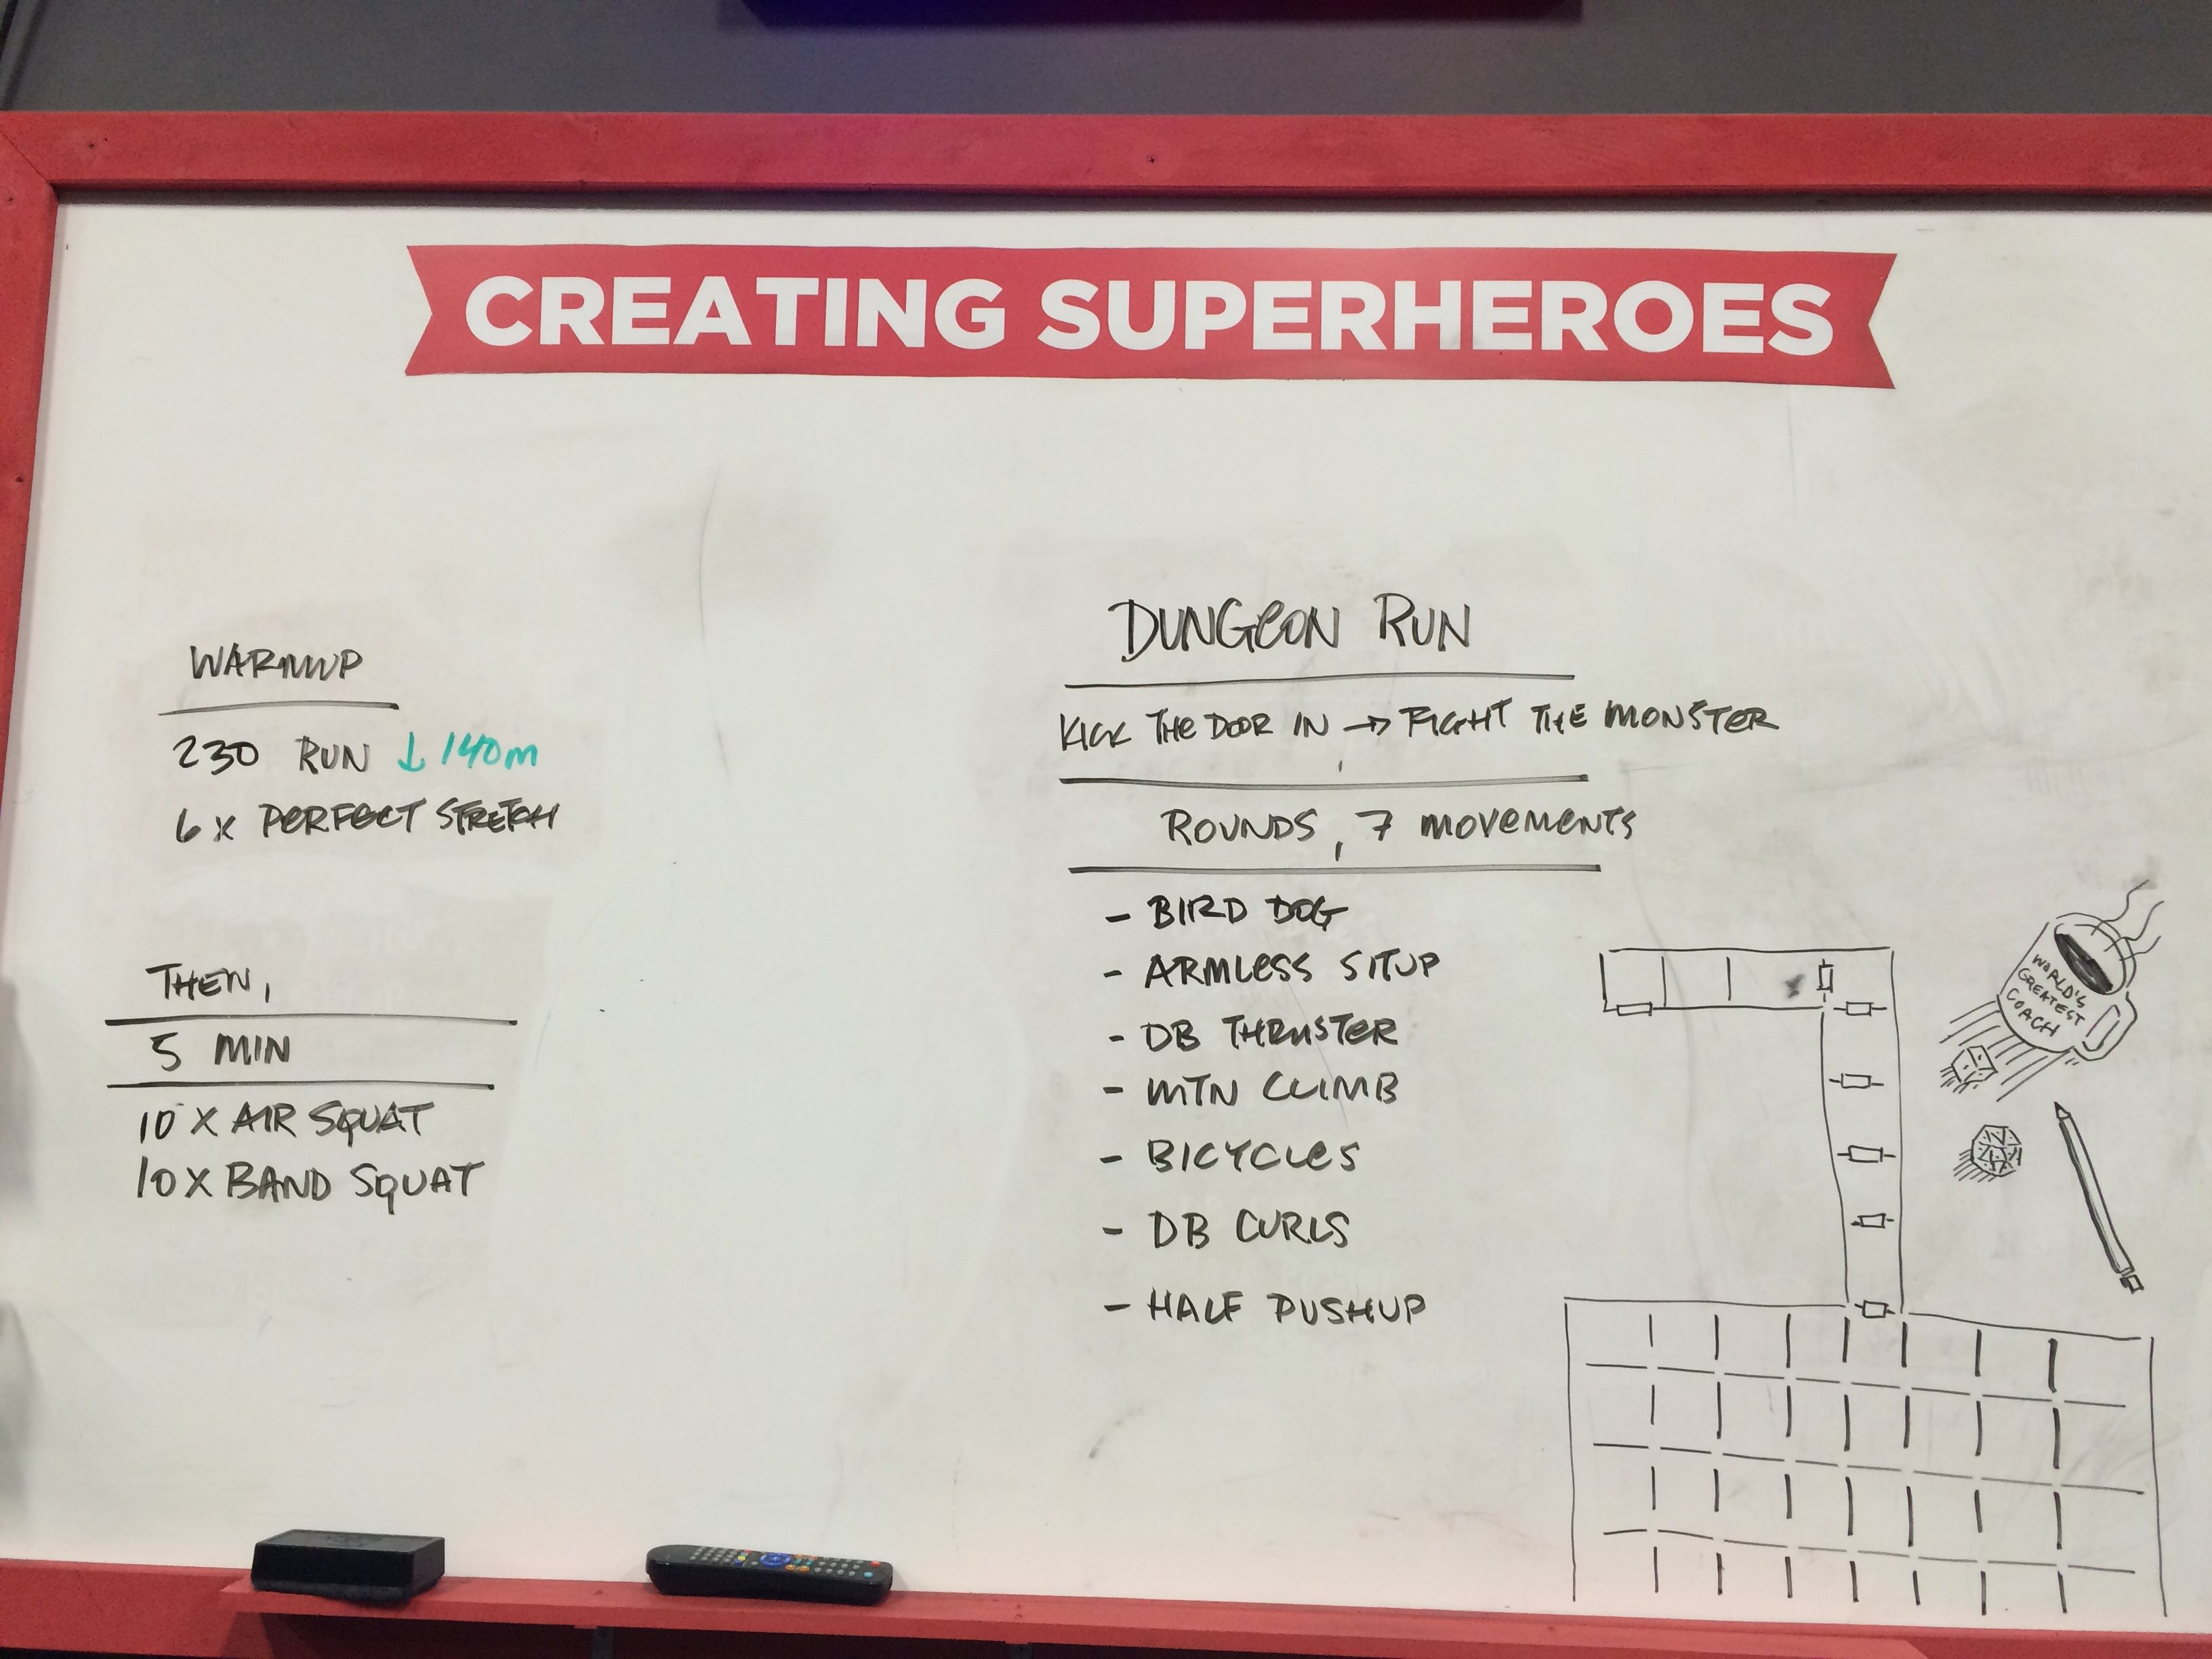 CREATING SUPERHEROES
WARMUP
230 RUN ↓ 140m
6 x PERFECT STRETCH
THEN,
5 MIN
10 X AIR SQUAT
10 X BAND SQUAT
DUNGEON RUN
KICK THE DOOR IN → FIGHT THE MONSTER
ROUNDS, 7 MOVEMENTS
- BIRD DOG
- ARMLESS SITUP
- DB THRUSTER
- MTN CLIMB
- BICYCLES
- DB CURLS
- HALF PUSHUP
WORLD'S
GREATEST
COACH